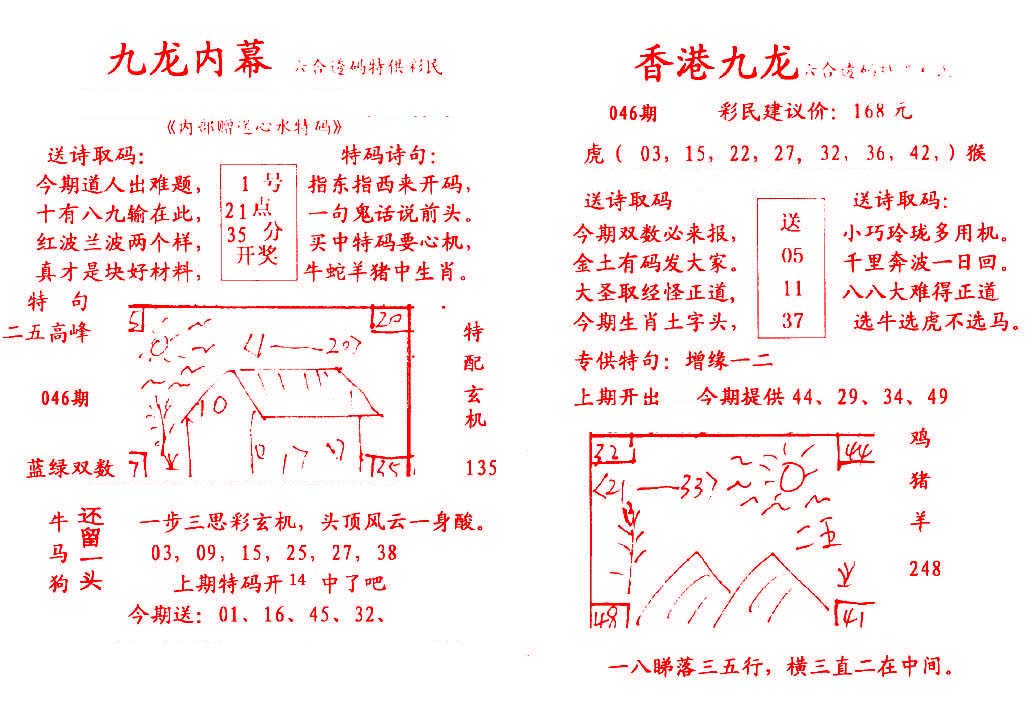 九龙内幕 六合透码特供彩民
《内部赠送心水特码》
送诗取码:
今期道人出难题,
十有八九输在此,
红波兰波两个样,
真才是块好材料,
1 号
21点
35 分
开奖
特码诗句:
指东指西来开码,
一句鬼话说前头。
买中特码要心机,
牛蛇羊猪中生肖。
特 句
二五高峰
046期
蓝绿双数
5
20
〈1——20〉
10
0 17 0
7
35
特
配
玄
机
135
牛
马
狗
还
留
一
头
一步三思彩玄机,头顶风云一身酸。
03, 09, 15, 25, 27, 38
上期特码开 14 中了吧
今期送: 01、16、45、32、
香港九龙 六合透码
046期 彩民建议价: 168 元
虎 ( 03, 15, 22, 27, 32, 36, 42, ) 猴
送诗取码
今期双数必来报,
金土有码发大家。
大圣取经怪正道,
今期生肖土字头,
送
05
11
37
送诗取码:
小巧玲珑多用机。
千里奔波一日回。
八八大难得正道
选牛选虎不选马。
专供特句: 增缘一二
上期开出 今期提供 44、29、34、49
32
44
〈21——33〉
二五
48
41
鸡
猪
羊
248
一八睇落三五行,横三直二在中间。